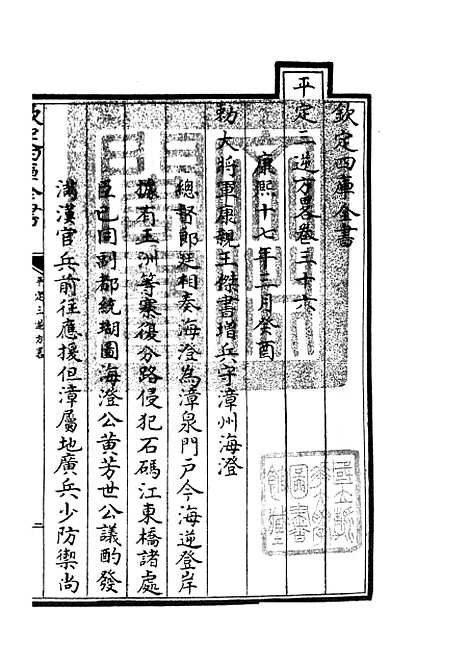 欽定四庫全書
平定三逆方畧卷三十六
康熙十七年二月癸酉
勅大將軍康親王傑書增兵守漳州海澄
總督郎廷相奏海澄為漳泉門戶今海逆登岸
據有玉洲等寨復分路侵犯石碼江東橋諸處
臣已同副都統瑚圖海澄公黃芳世公議酌發
滿漢官兵前往應援但漳屬地廣兵少防禦尚
欽定四庫全書
平定三逆方畧